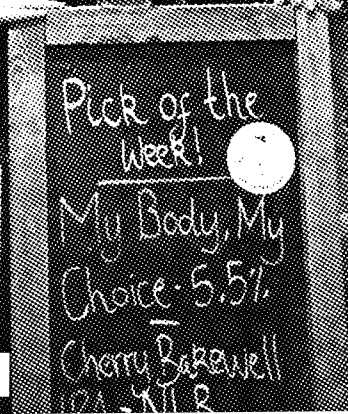 Pick of the
Week!
My Body, My
Choice - 5.5%
Cherry Bakewell
IPA - NLB